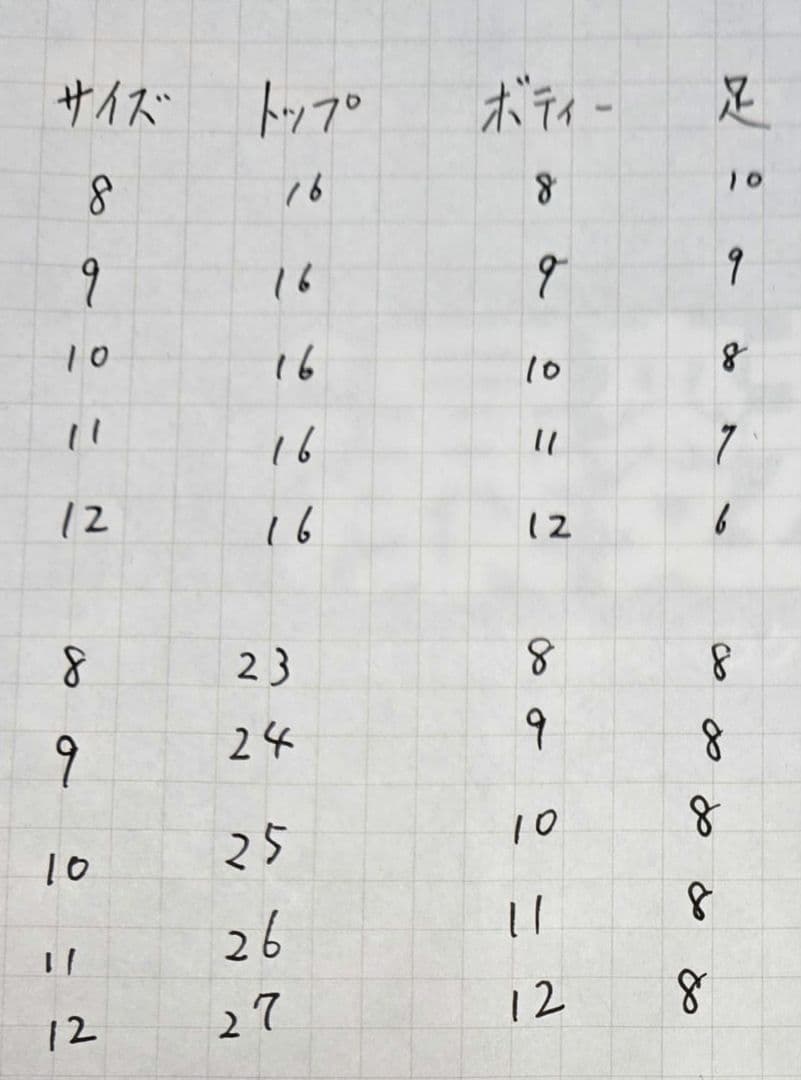 サイズ トップ ボディー 足
8 16 8 10
9 16 9 9
10 16 10 8
11 16 11 7
12 16 12 6
8 23 8 8
9 24 9 8
10 25 10 8
11 26 11 8
12 27 12 8